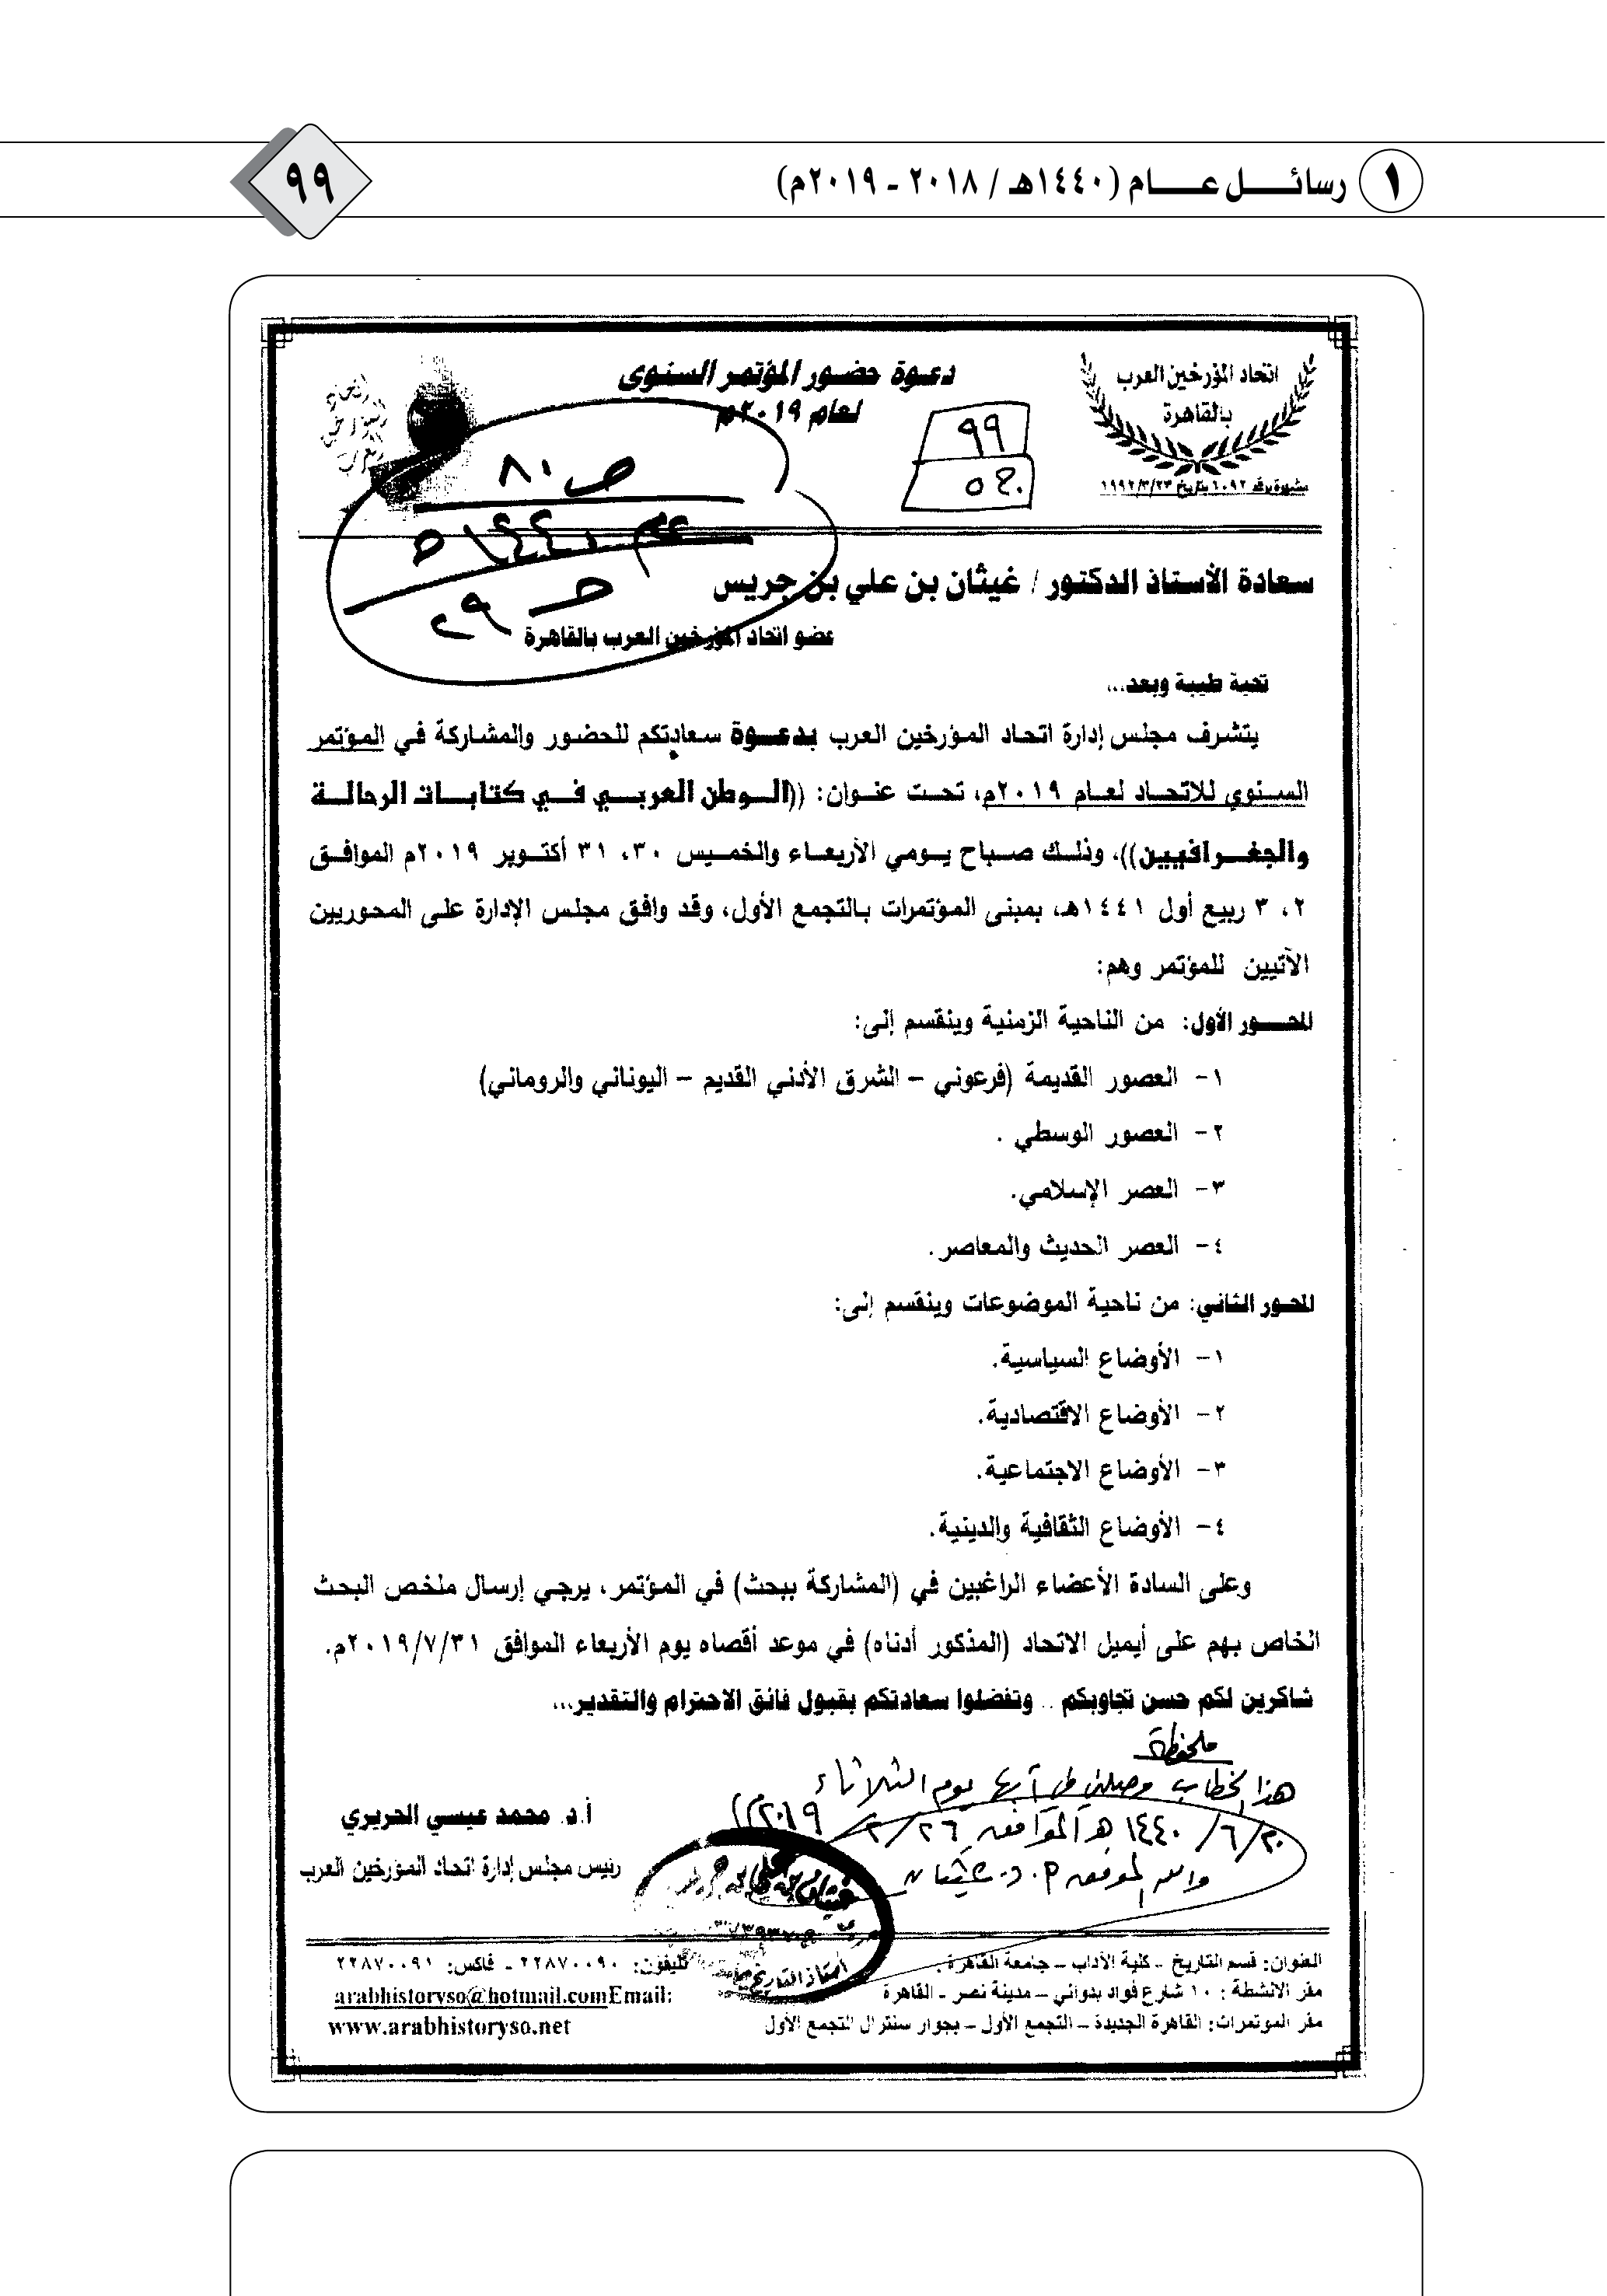 ١ رسائل عام (١٤٤٠هـ / ٢٠١٨ - ٢٠١٩م)
٩٩
اتحاد المؤرخين العرب
بالقاهرة
مشهرة برقم ١٠٩٢ بتاريخ ١٩٩٢/٣/٢٣
دعوة حضور المؤتمر السنوى
لعام ٢٠١٩م
اتحاد
المؤرخين
العرب
٩٩
ص ٨١
١٤٤٠ هـ
حـ ٢٩
سعادة الأستاذ الدكتور / غيثان بن علي بن جريس
عضو اتحاد المؤرخين العرب بالقاهرة
تحية طيبة وبعد...
يتشرف مجلس إدارة اتحاد المؤرخين العرب بدعوة سعادتكم للحضور والمشاركة في المؤتمر
السنوي للاتحاد لعام ٢٠١٩م، تحت عنوان: ((الوطن العربي في كتابات الرحالة
والجغرافيين))، وذلك صباح يومي الأربعاء والخميس ٣٠، ٣١ أكتوبر ٢٠١٩م الموافق
٢، ٣ ربيع أول ١٤٤١هـ، بمبنى المؤتمرات بالتجمع الأول، وقد وافق مجلس الإدارة على المحوريين
الآتيين للمؤتمر وهم:
المحور الأول: من الناحية الزمنية وينقسم إلى:
١- العصور القديمة (فرعوني – الشرق الأدني القديم – اليوناني والروماني)
٢- العصور الوسطي .
٣- العصر الإسلامي.
٤- العصر الحديث والمعاصر.
المحور الثاني: من ناحية الموضوعات وينقسم إلى:
١- الأوضاع السياسية.
٢- الأوضاع الاقتصادية.
٣- الأوضاع الاجتماعية.
٤- الأوضاع الثقافية والدينية.
وعلى السادة الأعضاء الراغبين في (المشاركة ببحث) في المؤتمر، يرجي إرسال ملخص البحث
الخاص بهم على أيميل الاتحاد (المذكور أدناه) في موعد أقصاه يوم الأربعاء الموافق ٢٠١٩/٧/٣١م.
شاكرين لكم حسن تجاوبكم .. وتفضلوا سعادتكم بقبول فائق الاحترام والتقدير...
ملحوظة
هذا الخطاب وصلني في أبها يوم الثلاثاء
٢٠/٦/١٤٤٠هـ الموافق ٢٦/٢/٢٠١٩م
والله الموفق أ. د. غيثان
أ.د. محمد عيسي الحريري
رئيس مجلس إدارة اتحاد المؤرخين العرب
غيثان بن علي بن جريس
أستاذ التاريخ
العنوان: قسم التاريخ - كلية الآداب – جامعة القاهرة .
تليفون: ٢٢٨٧٠٠٩٠ - فاكس: ٢٢٨٧٠٠٩١
مقر الانشطة : ١٠ شارع فواد بدوائي – مدينة نصر - القاهرة
arabhistoryso@hotmail.comEmail:
مقر الموتمرات: القاهرة الجديدة – التجمع الأول – بجوار سنترال التجمع الأول
www.arabhistoryso.net